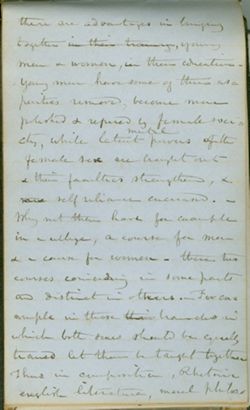 there are advantages in bringing
together in their training, young
men & women, in their education -
Young men have some of their as-
perities removed, become more
polished & refined by female soci-
ety, while latent mental powers of the
female sex are brought out
& their faculties strengthened, &
self reliance encreased. -
Why not then have for example
in a college, a course for men
& a course for women - these two
courses coinciding in some parts
and distinct in others. - For ex-
ample in those branches in
which both sexes should be equally
trained let them be taught together
Thus in composition, Rhetoric
english literature, moral philos